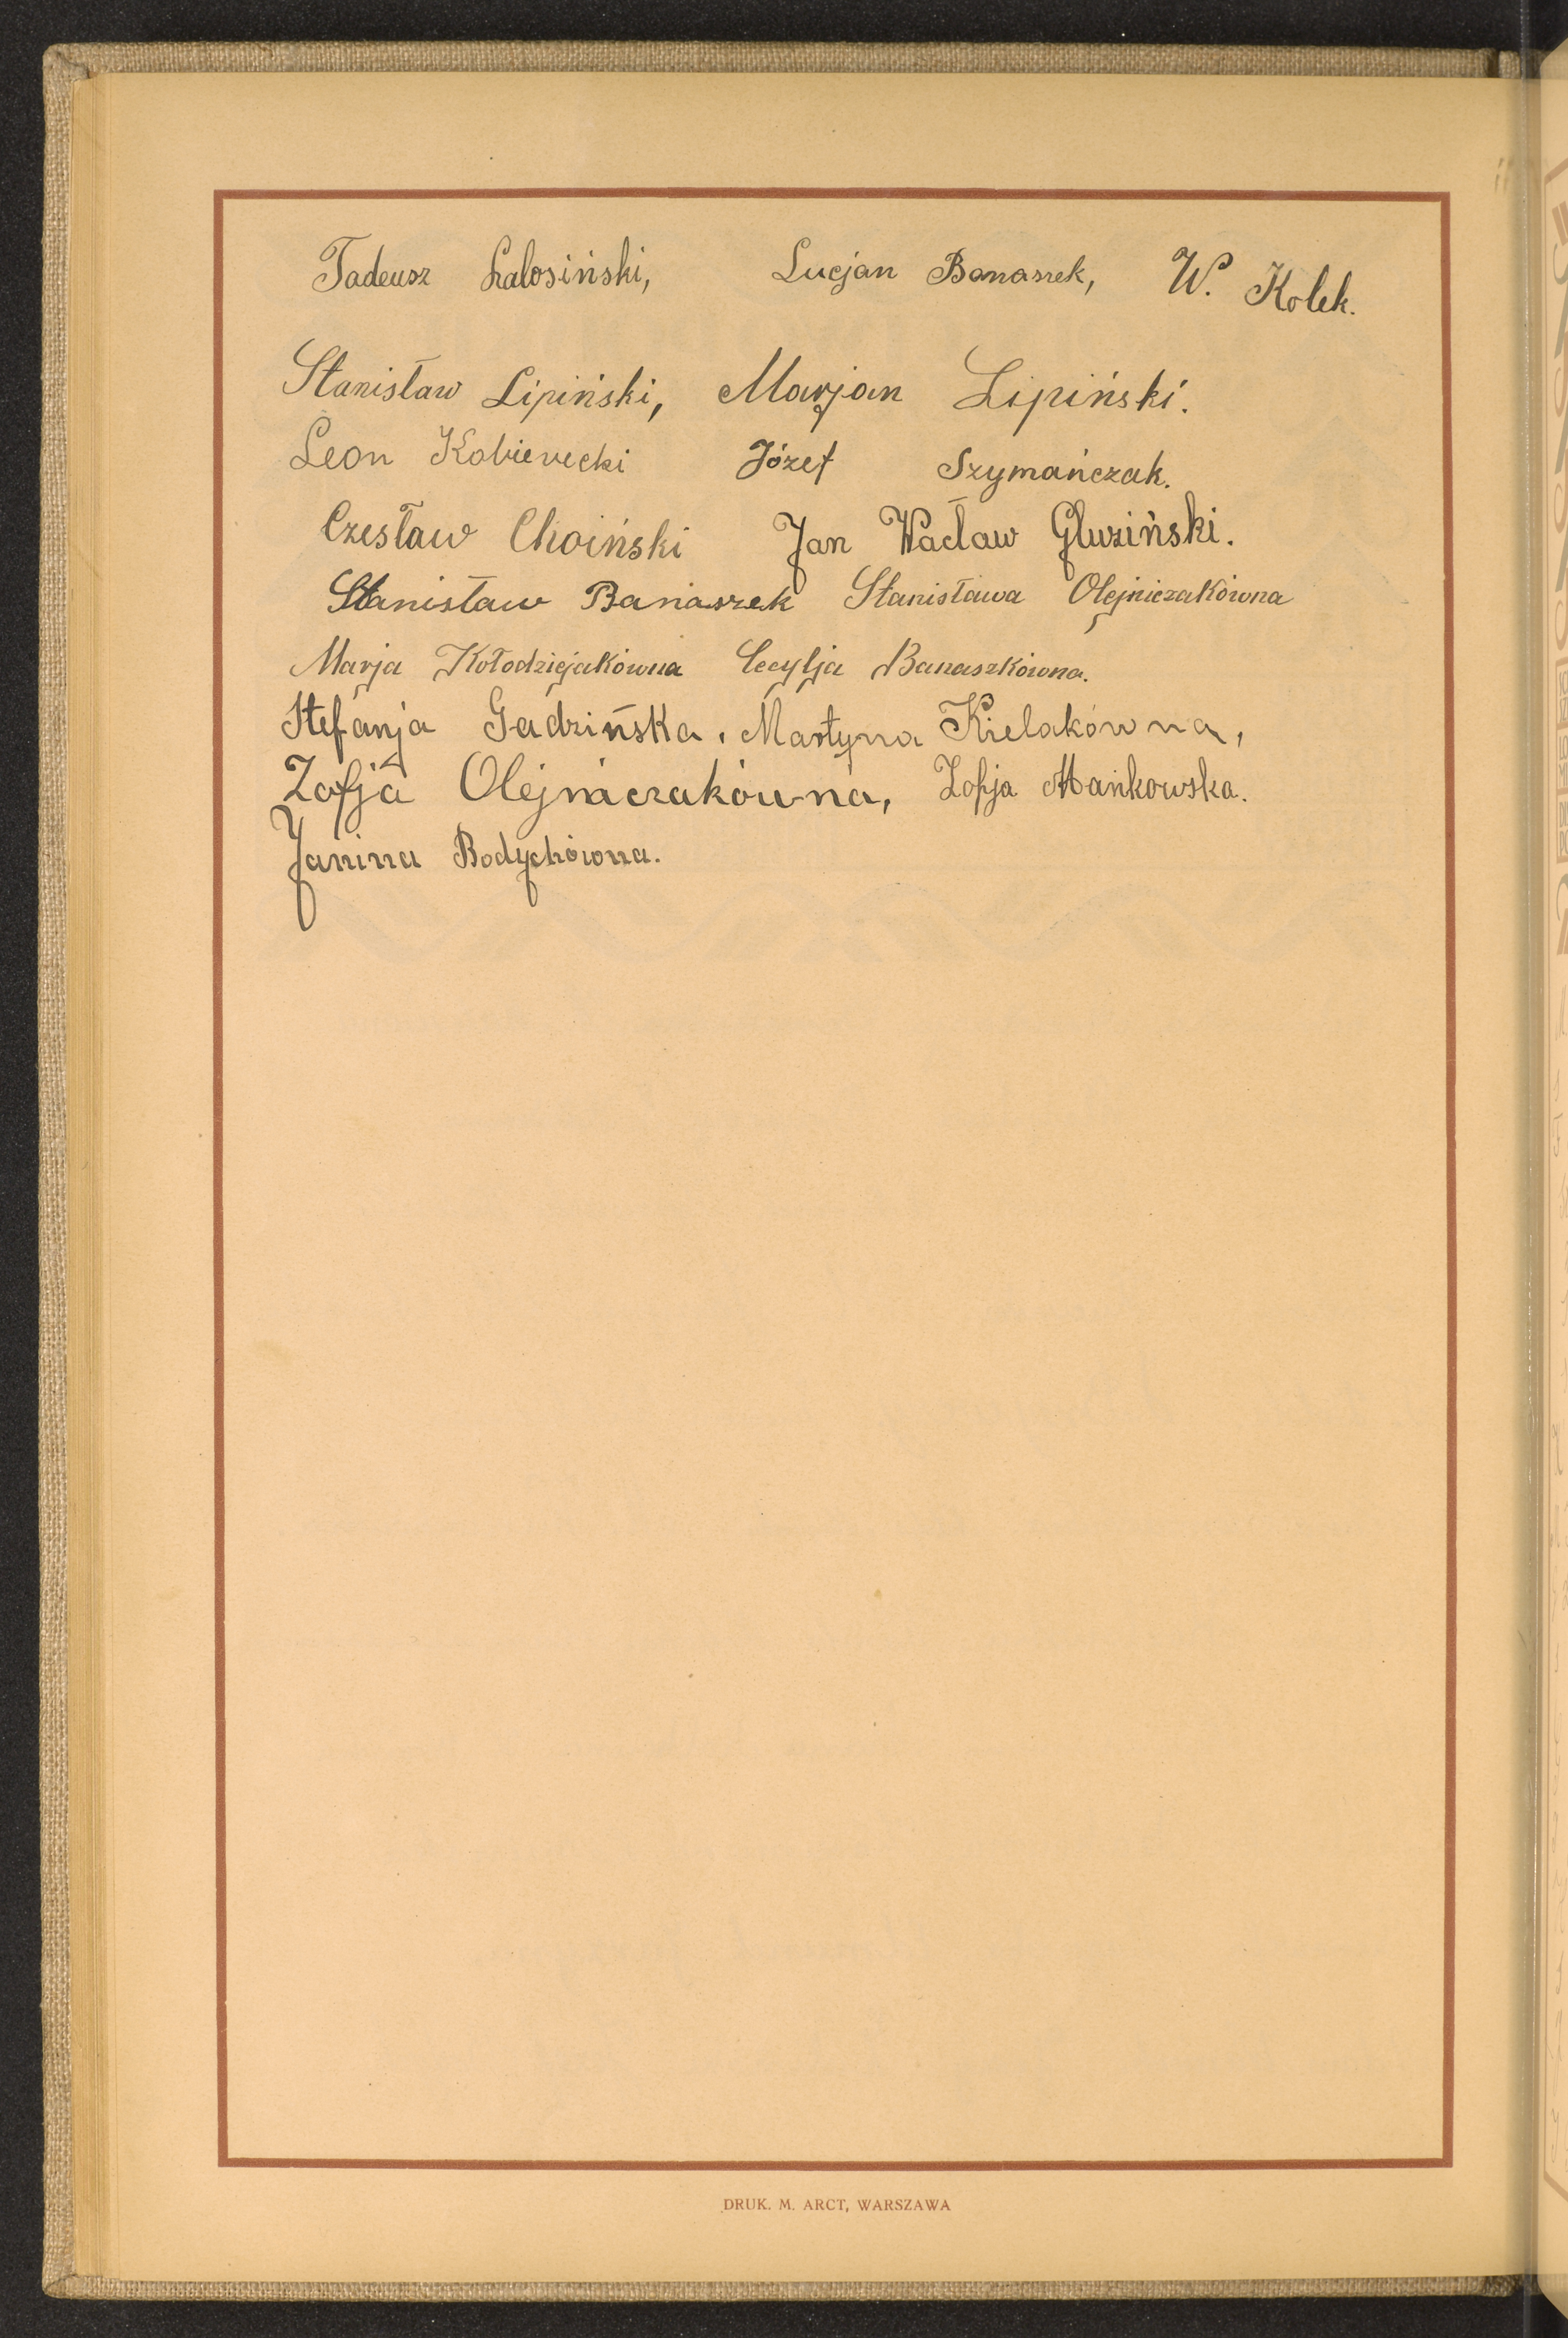 Tadeusz Lalosiński, Lucjan Banaszek, W. Kolek.
Stanisław Lipiński, Marjan Lipiński.
Leon Kobierecki Józef Szymańczak.
Czesław Choiński Jan Wacław Gluziński.
Stanisław Banaszek Stanisława Olejniczakówna
Marja Kołodziejakówna Cecylja Banaszkówna.
Stefanja Gadzińska, Martyna Kielakówna,
Zofja Olejniczakówna, Zofja Mańkowska.
Janina Bodychówna.
DRUK. M. ARCT, WARSZAWA